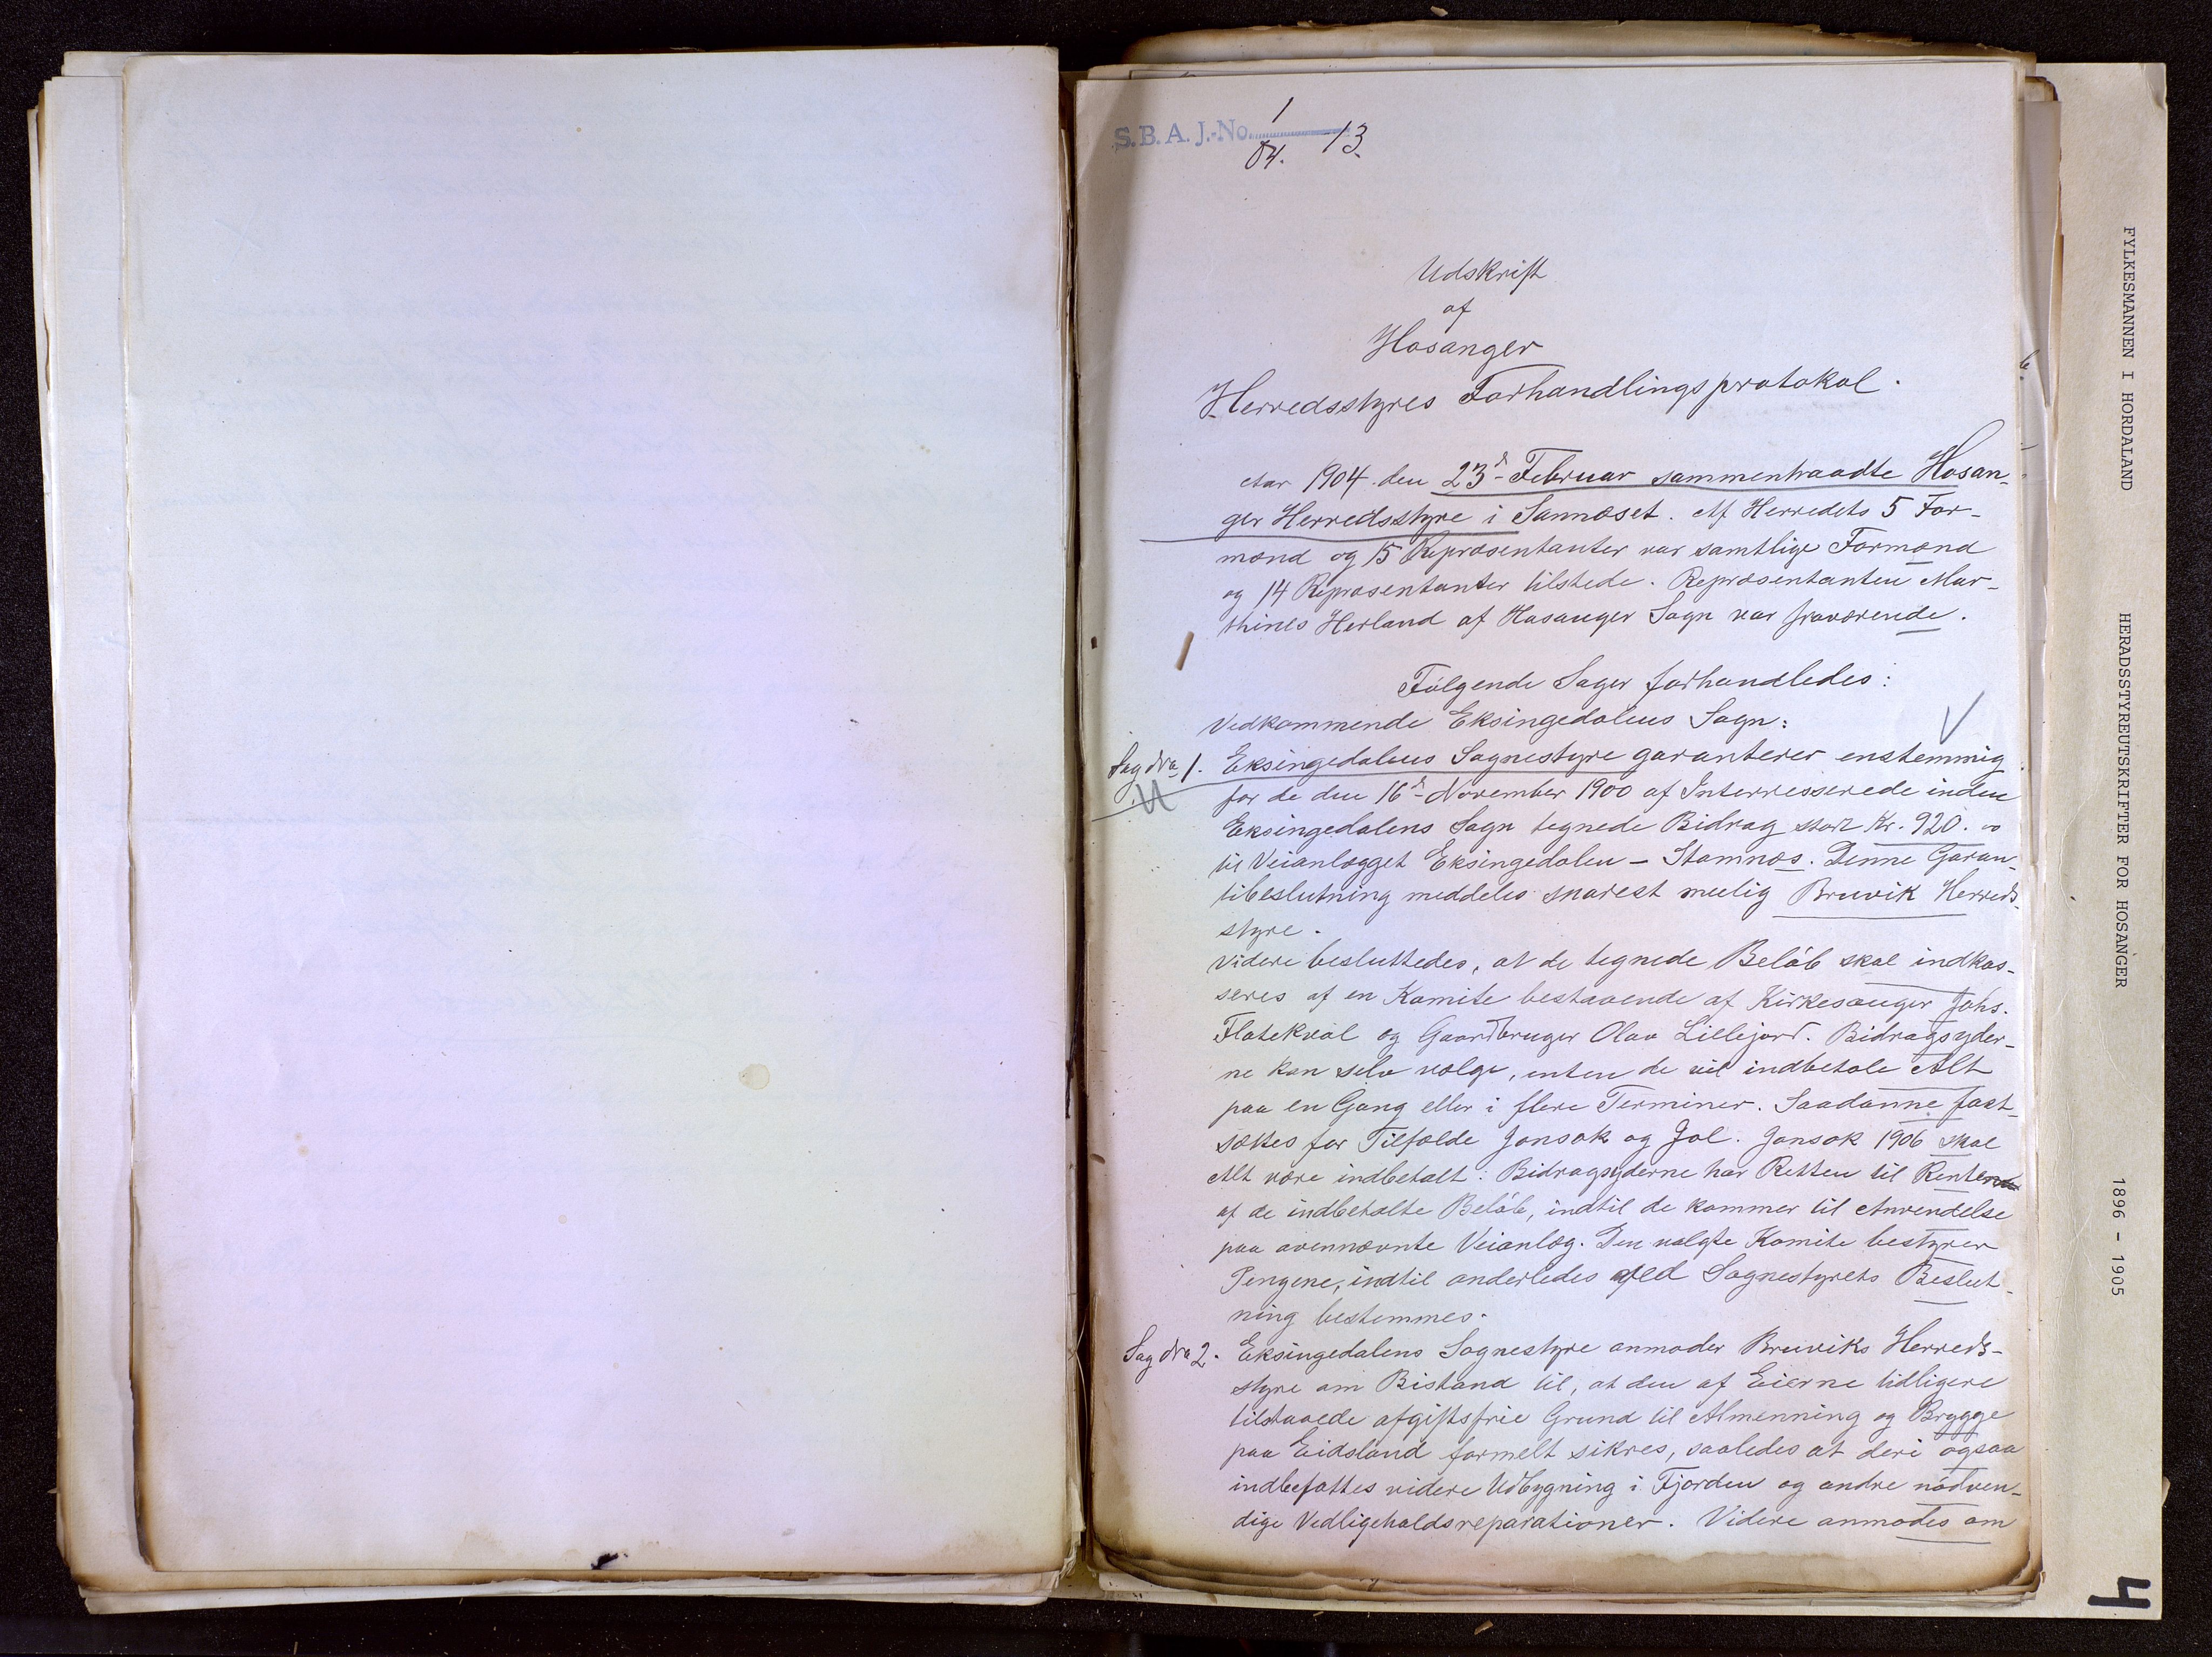 S.B.A.J.-No. 1/04. 13.
Udskrift
af
Hosanger
Herredsstyres Forhandlingsprotokol.
Aar 1904 den 23d- Februar sammentraadte Hosan-
ger Herredsstyre i Sannæset. Af Herredets 5 For-
mænd og 15 Repræsentanter var samtlige Formænd
og 14 Repræsentanter tilstede. Repræsentanten Mar-
thines Herland af Hosanger Sogn var fraværende.
Følgende Sager forhandledes:
Vedkommende Eksingedalens Sogn:
Sag No 1. Eksingedalens Sognestyre garanterer enstemmig
for de den 16d- November 1900 af Interresserede inden
Eksingedalens Sogn tegnede Bidrag stor Kr. 920.00
til Veianlægget Eksingedalen - Stamnæs. Denne Garan-
tibeslutning meddeles snarest mulig Bruvik Herreds-
styre.
Videre besluttedes, at de tegnede Beløb skal indkas-
seres af en Komite bestaaende af Kirkesanger Johs.
Flatekval og Gaardbruger Olav Lillejord. Bidragsyder-
ne kan selv vælge, enten de vil indbetale Alt
paa en Gang eller i flere Terminer. Saadanne fast-
sættes for Tilfælde Jonsok og Jol. Jonsok 1906 skal
Alt være indbetalt. Bidragsyderne har Retten til Renter
af de indbetalte Beløb, indtil de kommer til Anvendelse
paa ovennævnte Veianlæg. Den valgte Komite bestyrer
Pengene, indtil anderledes ved Sognestyrets Beslut-
ning bestemmes.
Sag No 2. Eksingedalens Sognestyre anmoder Bruviks Herreds-
styre om Bistand til, at den af Eierne tidligere
tilstaaede afgiftsfrie Grund til Almenning og Brygge
paa Eidsland formelt sikres, saaledes at deri ogsaa
indbefattes videre Udbygning i Fjorden og andre nødven-
dige Vedligeholdsreparationer. Videre anmodes om
FYLKESMANNEN I HORDALAND HERADSSTYREUTSKRIFTER FOR HOSANGER 1896 - 1905
4